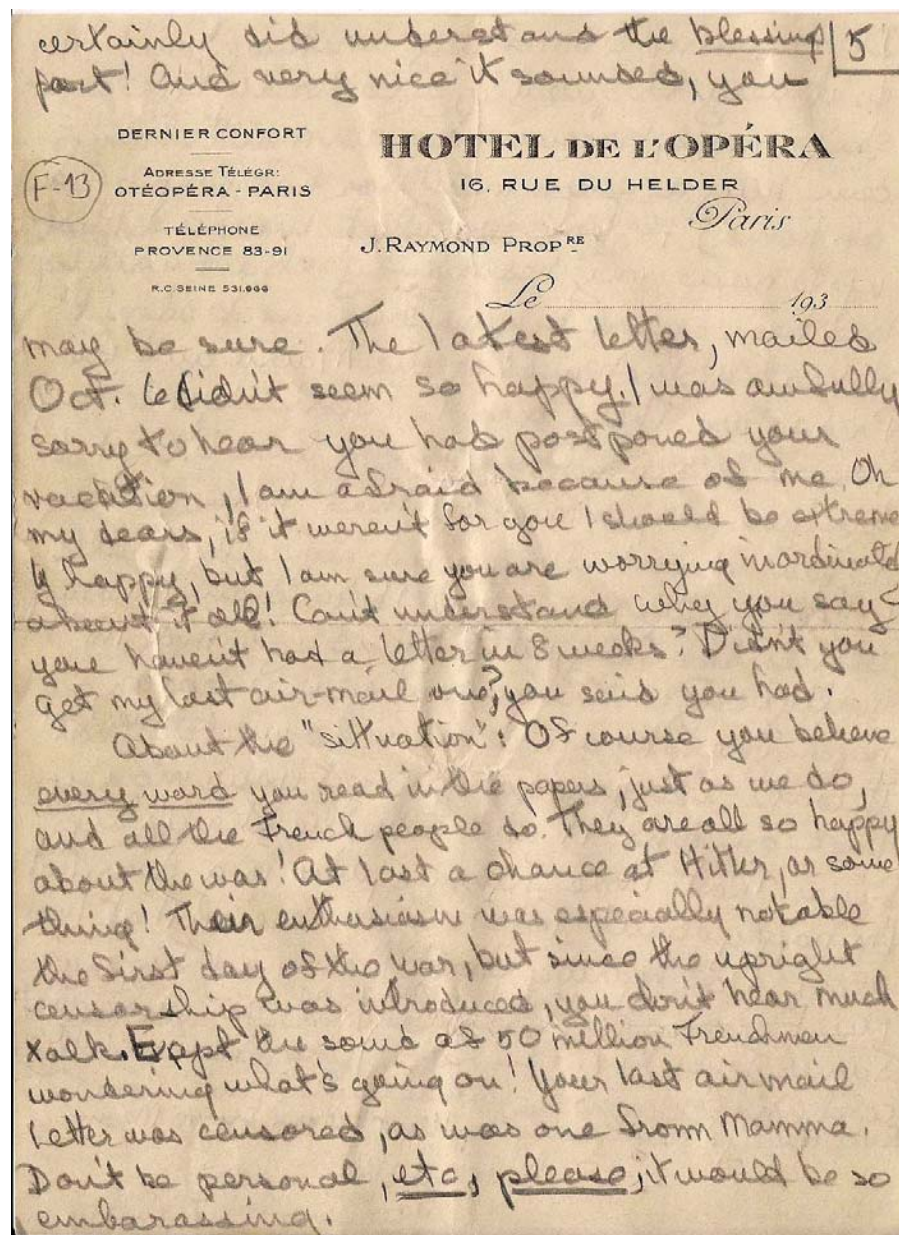 certainly did understand the blessing 5
part! And very nice it sounded, you
DERNIER CONFORT
ADRESSE TÉLÉGR:
OTÉOPÉRA - PARIS
TÉLÉPHONE
PROVENCE 83-91
R.C. SEINE 531.666
F-13
HOTEL DE L'OPÉRA
16, RUE DU HELDER
Paris
J. RAYMOND PROPRE
Le 193
may be sure. The latest letter, mailed
Oct. 6 didn't seem so happy. I was awfully
sorry to hear you had postponed your
vacation, I am afraid because of me. Oh
my dears, if it weren't for you I should be extreme
ly happy, but I am sure you are worrying inordinately
about it all! Can't understand why you say
you haven't had a letter in 8 weeks? Didn't you
get my last air-mail one?, you said you had.
About the "sittuation": Of course you believe
every word you read in the papers, just as we do,
and all the French people do. They are all so happy
about the war! At last a chance at Hitler, or some
thing! Their enthusiasm was especially notable
the first day of the war, but since the upright
censorship was introduced, you don't hear much
talk. Exept the sound of 50 million Frenchmen
wondering what's going on! Your last airmail
letter was censored, as was one from Mamma.
Don't be personal, etc, please, it would be so
embarassing.